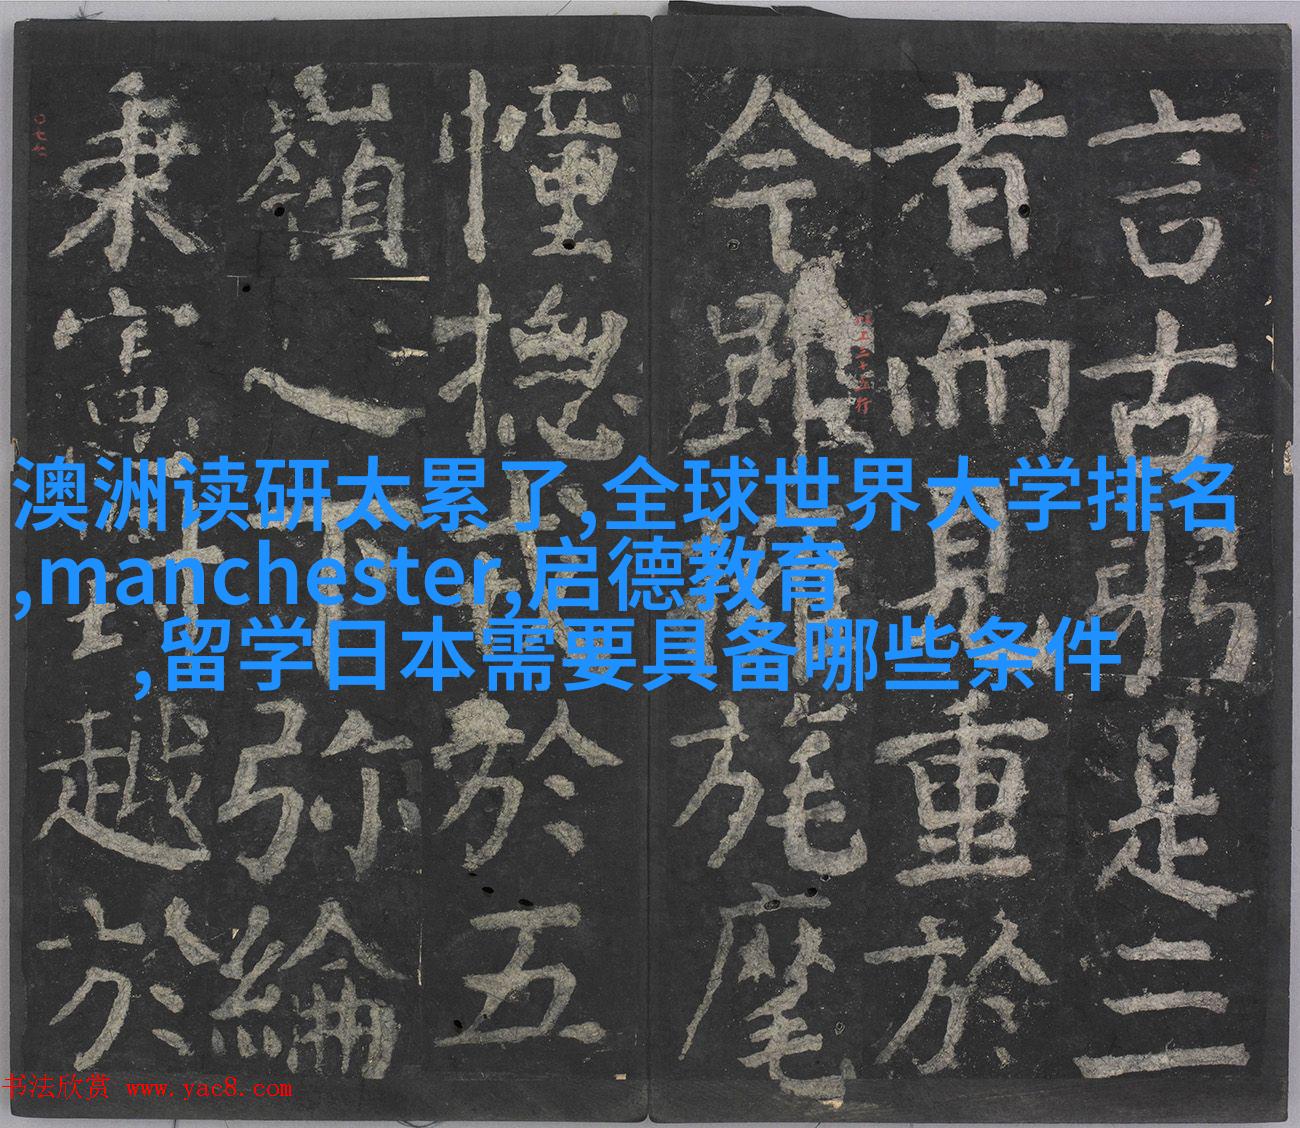 言古弱是三
者而見重於
今雖擁旄麾
幢摠戎於五
嶺之下弥綸
秉憲對越於
以上三十五行
澳洲读研太累了,全球世界大学排名
,manchester,启德教育
,留学日本需要具备哪些条件
书法欣赏 www.yac8.com